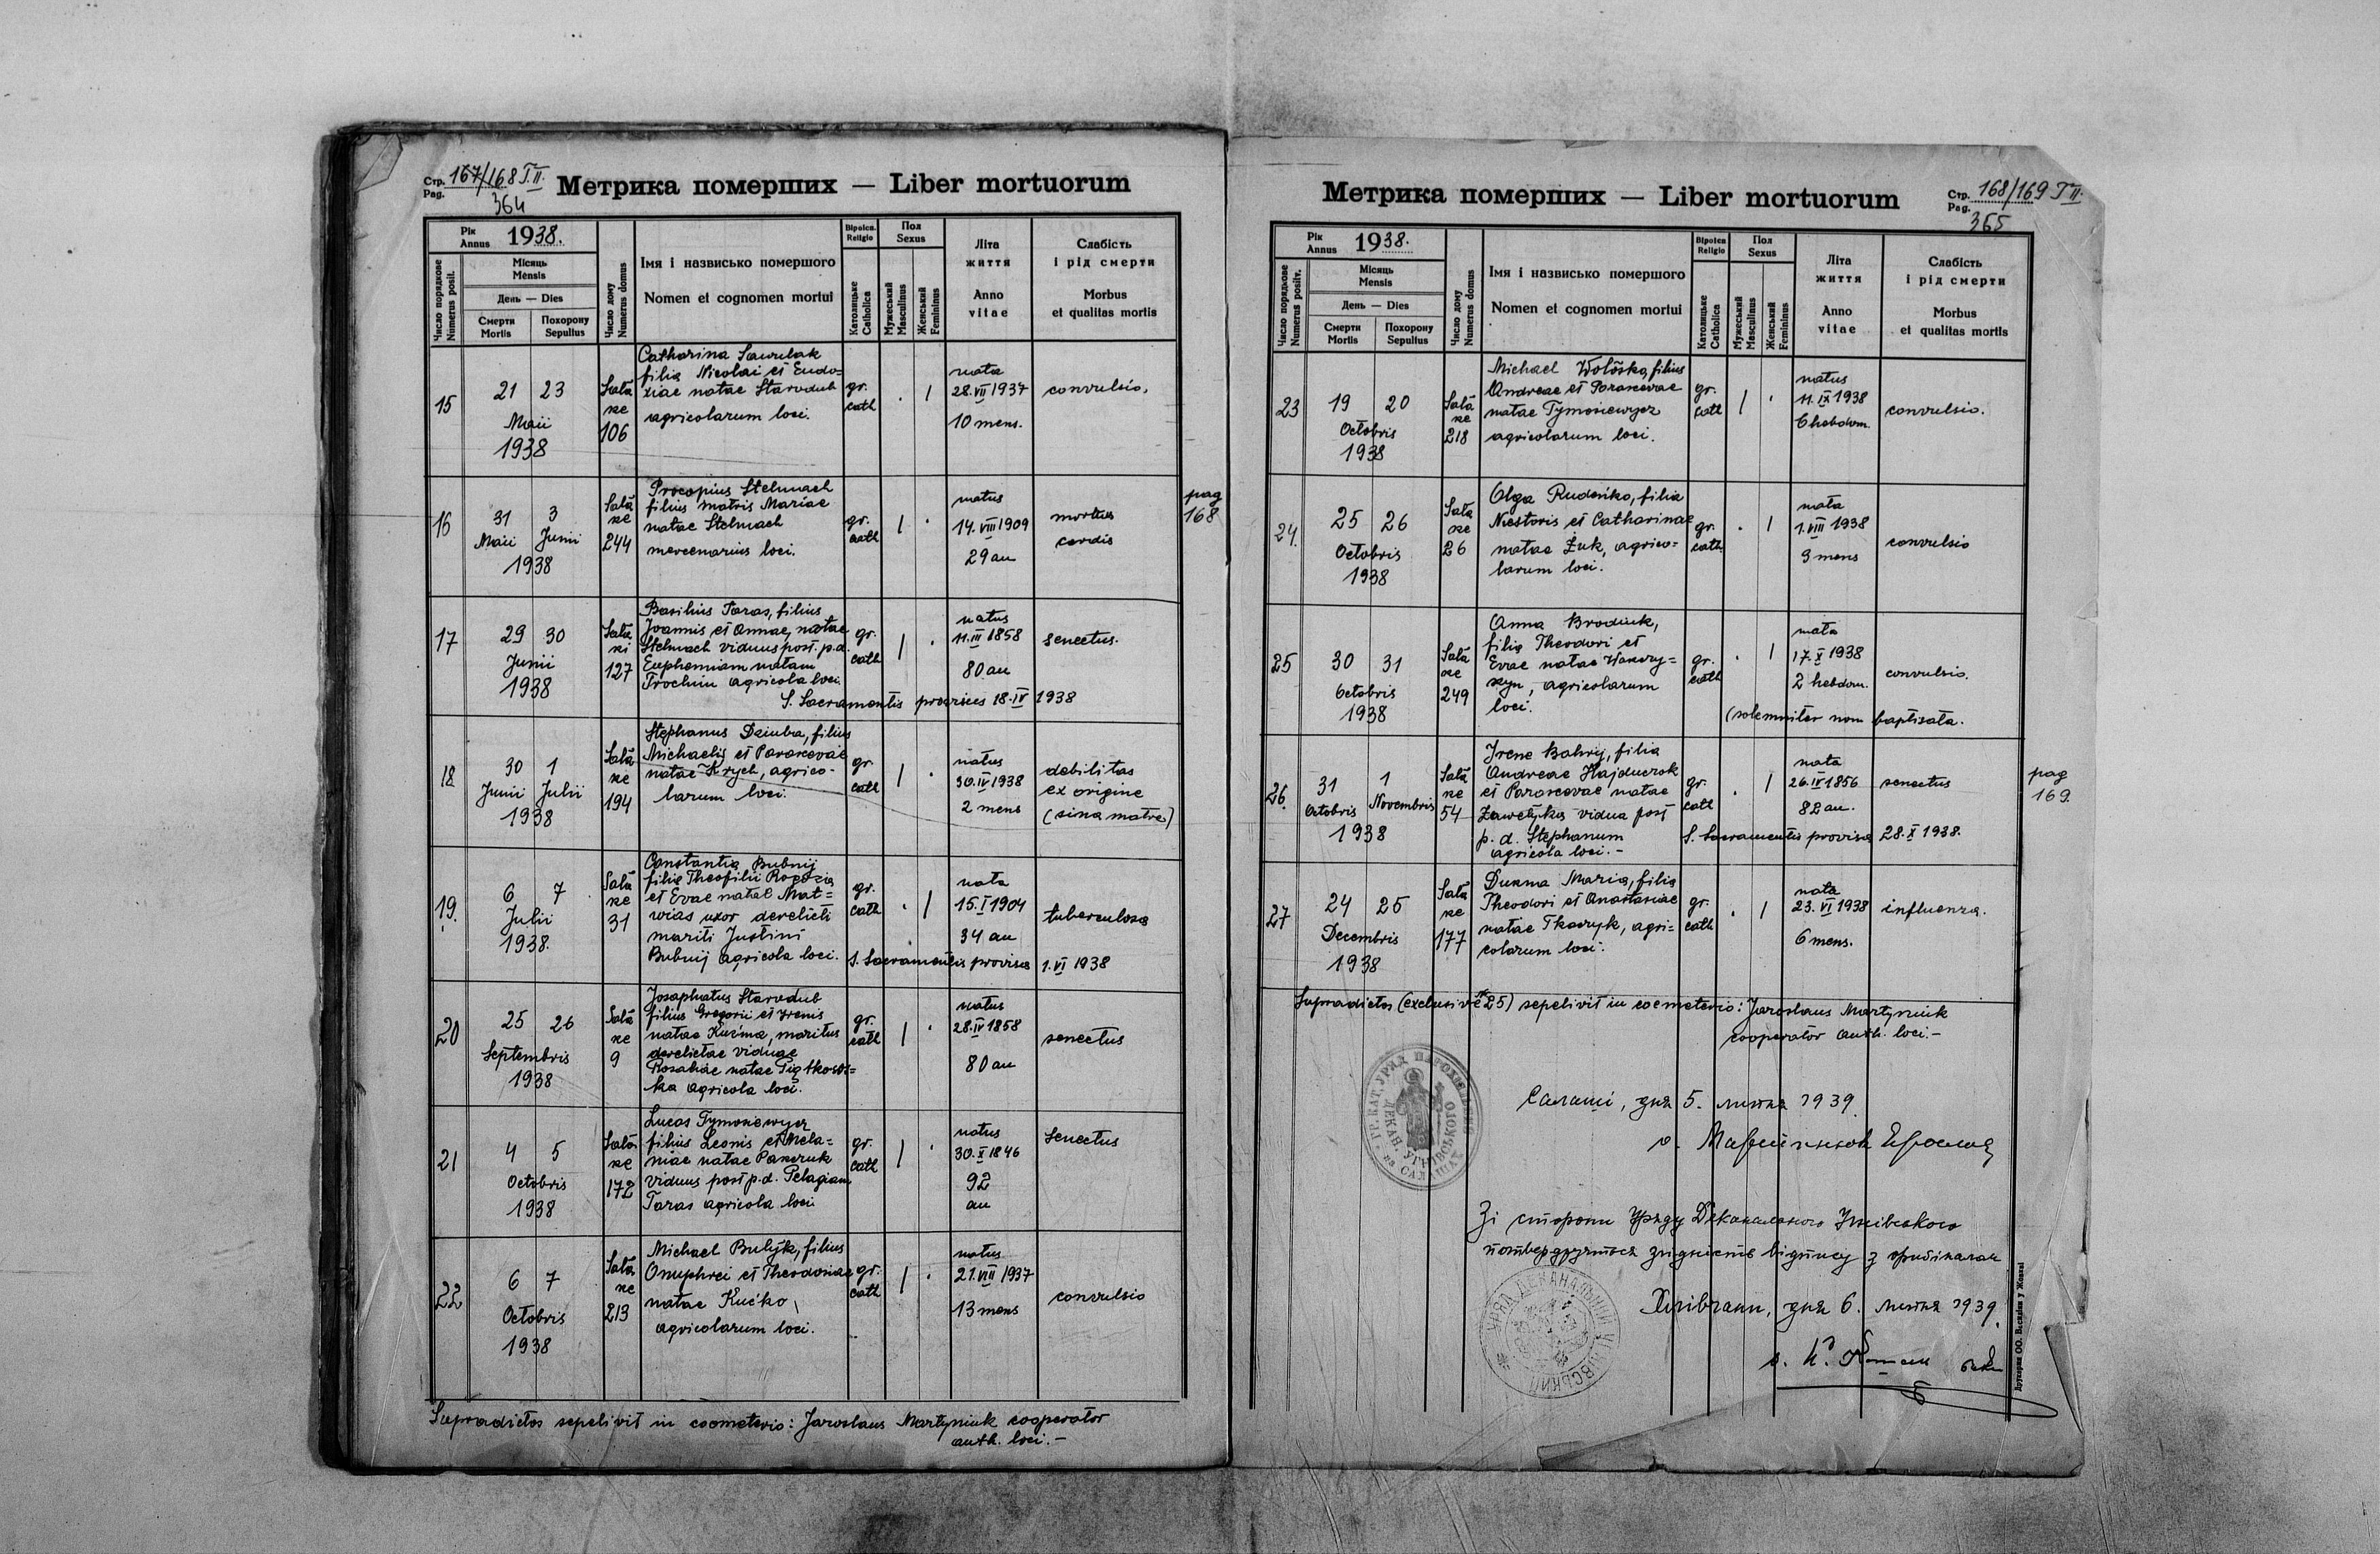 Стр. Pag. 167/168 T.II.
364
Метрика померших — Liber mortuorum
Рік Annus 1938.
Число порядкове Numerus posit.
Місяць Mensis
День — Dies
Смерти Mortis
Похорону Sepultus
Число дому Numerus domus
Імя і назвисько помершого
Nomen et cognomen mortui
Віроісп. Religio
Католицьке Catholica
Пол Sexus
Мужеський Masculinus
Женський Femininus
Літа життя
Anno vitae
Слабість і рід смерти
Morbus et qualitas mortis
15
21 23
Maii
1938
Sałasze
106
Catharina Sawulak
filia Nicolai et Eudo-
xiae natae Starodub
agricolarum loci.
gr. cath
. /
nata
28.VII 1937
10 mens.
convulsio.
16
31 3
Maii Junii
1938
244
Procopius Stelmach
filius matris Mariae
natae Stelmach
mercenarius loci.
gr. cath
/ .
natus
14.VIII 1909
29 an
mortus
cordis
pag
168
17
29 30
Junii
1938
127
Basilius Taras, filius
Joannis et Annae, natae
Stelmach viduus post. p.d.
Euphemiam natam
Trochim agricola loci.
gr. cath
/ .
natus
11.III 1858
80 an
senectus.
S. Sacramentis provisus 18.IV 1938
18
30 1
Junii Julii
1938
194
Stephanus Dziuba, filius
Michaelis et Parascevae
natae Krych, agrico-
larum loci.
gr cath
/ .
natus
30.IV 1938
2 mens
debilitas
ex origine
(sina matre)
19.
6 7
Julii
1938.
31
Constantia Bubnij
filia Theofilii Rogozia
et Evae natae Mat-
wias uxor derelicti
mariti Justini
Bubnij agricola loci.
gr. cath
. /
nata
15.I 1904
34 an
tuberculosa
S. Sacramentis provisa 1.VI 1938
20
25 26
Septembris
1938
9
Josaphatus Starodub
filius Gregorii et Irenis
natae Kuźma, maritus
derelictae viduae
Rosaliae natae Piątkows-
ka agricola loci.
gr. cath
/ .
natus
28.IV 1858
80 an
senectus
21
4 5
Octobris
1938
172
Lucas Tymosewycz
filius Leonis et Mela-
niae natae Panczuk
viduus post p.d. Pelagiam
Taras agricola loci
gr. cath
/ .
natus
30.X 1846
92
an
Senectus
22
6 7
Octobris
1938
213
Michael Bulyk, filius
Onuphrei et Theodosiae
natae Kućko,
agricolarum loci.
gr. cath
/ .
natus
21.VIII 1937
13 mens
convulsio
Supradictos sepelivit in coemeterio: Jaroslaus Martyniuk cooperator
auth. loci.—
Метрика померших — Liber mortuorum
Стр. Pag. 168/169 T II.
365
Рік Annus 1938.
Число порядкове Numerus posit.
Місяць Mensis
День — Dies
Смерти Mortis
Похорону Sepultus
Число дому Numerus domus
Імя і назвисько помершого
Nomen et cognomen mortui
Віроісп Religio
Католицьке Catholica
Пол Sexus
Мужеський Masculinus
Женський Femininus
Літа життя
Anno vitae
Слабість і рід смерти
Morbus et qualitas mortis
23
19 20
Octobris
1938
218
Michael Wołoszka, filius
Andreae et Parascevae
natae Tymosewycz
agricolarum loci.
gr. cath
/ .
natus
11.IX 1938
6 hebdom.
convulsio.
24.
25 26
Octobris
1938
26
Olga Rudeńko, filia
Nestoris et Catharinae
natae Żuk, agrico-
larum loci.
gr. cath.
. /
nata
1.VIII 1938
3 mens
convulsio
25
30 31
Octobris
1938
249
Anna Brodiuk,
filia Theodori et
Evae natae
agricolarum
loci.
gr. cath
. /
nata
17.X 1938
2 hebdom.
convulsio.
(solemniter non baptisata.
26.
31 1
Octobris Novembris
1938
54
Irene Bahrij, filia
Andreae Hajduczok
et Parascevae natae
vidua post
p. d. Stephanum
agricola loci.—
gr. cath
. /
nata
26.IV 1856
82 an.
senectus
S. Sacramentis provisa 28.X 1938.
pag
169.
27
24 25
Decembris
1938
177
Dukma Maria, filia
Theodori et Anastasiae
natae Tkaczyk, agri-
colarum loci.
gr. cath
. /
nata
23.VI 1938
6 mens.
influenza.
Supradictos (exclusive N 25) sepelivit in coemeterio: Jaroslaus Martyniuk
cooperator auth. loci.—
ГР. КАТ. УРЯД ПАРОХІЯЛЬНИЙ
ДЕКАН. УГНІВСЬКОГО
в САЛАШАХ
Салаші, дня 5. липня 1939.
о. Мартинюк Ярослав
Зі сторони Уряду Деканального Угнівського
потверджується згідність відпису з оригіналом
УРЯД ДЕКАНАЛЬНИЙ УГНІВСЬКИЙ
Хлівчани, дня 6. липня 1939.
Друкарня ОО. Василіян у Жовкві